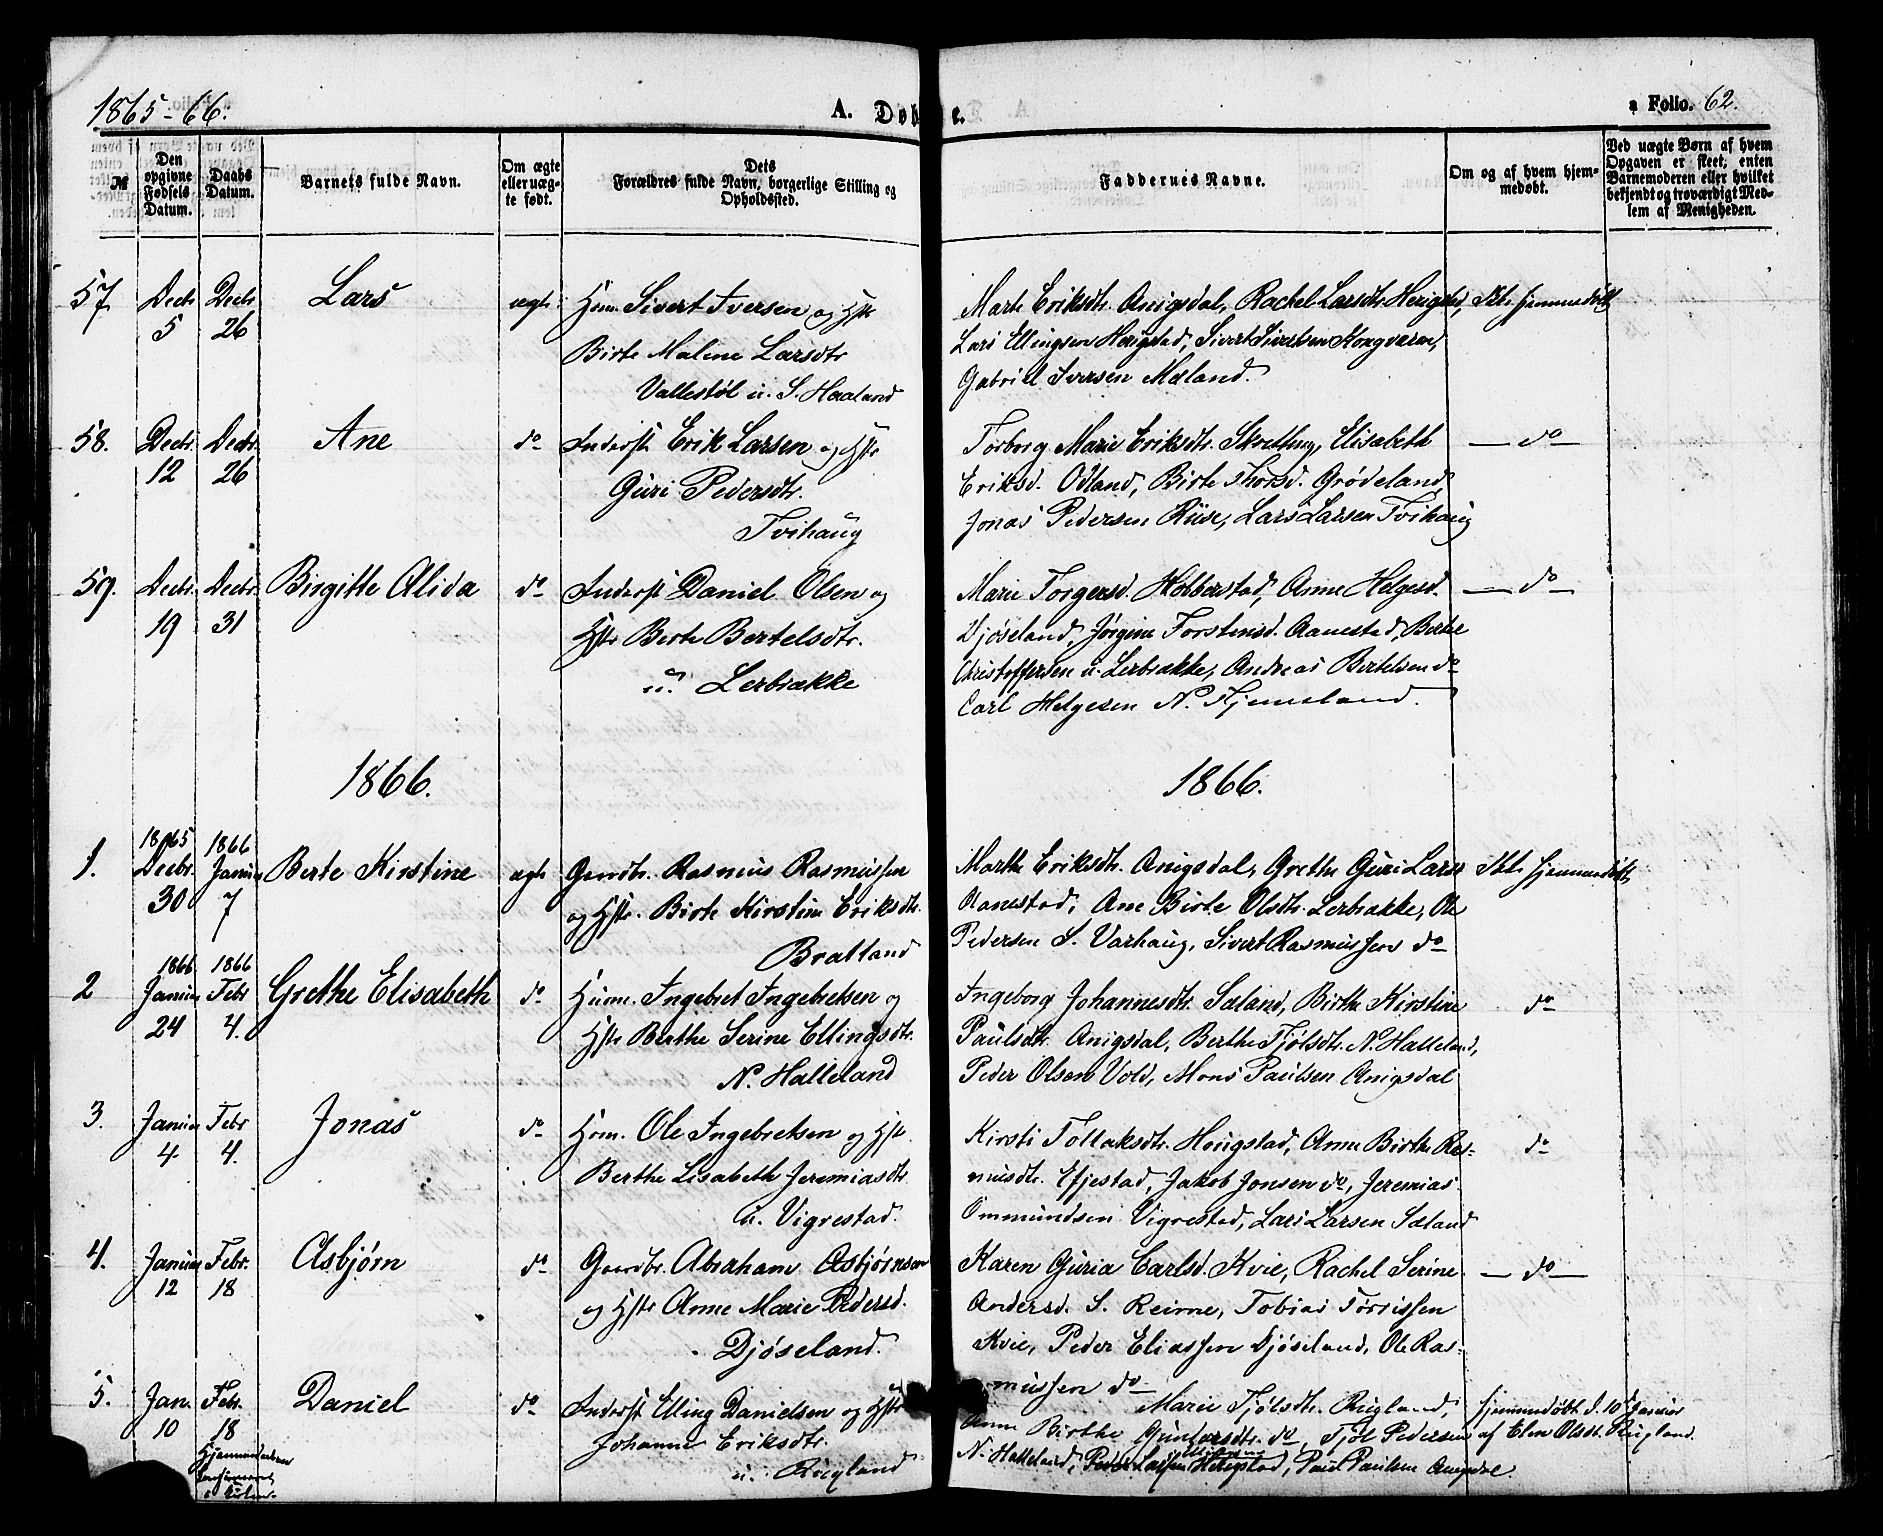 1865-66.
A. Døb e.
a Folio. 62.
№
Den opgivne Fødsels Datum.
Daabs Datum.
Barnets fulde Navn.
Om ægte eller uægte født.
Dets Forældres fulde Navn, borgerlige Stilling og Opholdssted.
Faddernes Navne.
Om og af hvem hjemmedøbt.
Ved uægte Børn af hvem Opgaven er skeet, enten Barnemoderen eller hvilket bekjendt og troværdigt Medlem af Menigheden.
57. Decbr 5 Decbr 26 Lars ægte
Hum. Sivert Iversen og Hstr
Birte Malene Larsdtr
Vallestøl u. S. Haaland
Marte Eriksdtr. Anigsdal, Rachel Larsdtr. Herigstad,
Lars Ellingsen Herigstad, Sivert Sivertsen Kongvarm,
Gabriel Iversen Mæland.
Ikke hjemmedøbt
58. Decbr. 12 Decbr. 26 Ane do
Inderst Erik Larsen og Hstr
Guri Pedersdtr.
Tvihaug
Torborg Marie Eriksdtr. Skretting, Elisabeth
Eriksd. Odland, Birte Thorsd. Grødeland,
Jonas Pedersen Riise, Lars Larsen Tvihaug
— do —
59. Decbr. 19 Decbr. 31 Birgitte Alida do
Inderst Daniel Olsen og
Hstr Berte Bertelsdtr.
u. Lerbrække
Marie Torgersd. Hobberstad, Anne Helgesd.
Djøseland, Jørgine Torstensd. Aanestad, Berte
Christoffersen u. Lerbrække, Andreas Bertelsen do
Carl Helgesen N. Fjemeland.
— do —
1866.
1866.
1. 1865 Decbr. 30 1866 Januar 7 Berte Kirstine ægte
Gaardbr. Rasmus Rasmussen
og Hstr. Birte Kirstine Eriksdtr.
Bratland
Marthe Eriksdtr. Anigsdal, Grethe Guri Lars
Aanestad, Ane Birte Olsdtr. Lerbrække, Ole
Pedersen S. Varhaug, Sivert Rasmussen do
Ikke hjemmedøbt
2 1866 Januar 24 1866 Febr 4. Grethe Elisabeth do
Husm. Ingebret Ingebretsen og
Hstr Berthe Serine Ellingsdtr.
N. Halleland
Ingeborg Johannesdtr. Sæland, Birthe Kirstine
Paulsdtr. Anigsdal, Berthe Tjølsdtr. N. Halleland,
Peder Olsen Vold, Mons Paulsen Anigsdal
do
3. Januar 4. Febr 4. Jonas do
Hsm. Ole Ingebretsen og Hstr.
Berthe Lisabeth Jeremiasdtr.
u. Vigrestad.
Kirsti Tollaksdtr. Herigstad, Anne Birthe Ras-
musdtr. Efjestad, Jakob Jonsen do, Jeremias
Ommundsen Vigrestad, Lars Larsen Sæland
do
4. Januar 12 Febr. 18 Asbjørn do
Gaardbr. Abraham Asbjørnsen
og Hstr Anne Marie Pedersd.
Djøseland.
Karen Guria Carlsd. Kvie, Rachel Serine
Andersd. S. Reime, Tobias Torrissen
Kvie, Peder Eliassen Djøseland, Ole Ras-
mussen do
— do —
5. Jan. 10 Febr. 18 Daniel do
Hjemmedaaben
Inderst Elling Danielsen og Hstr
Johanne Eriksdtr.
u. Rugland
Marie Tjølsdtr. Rugland,
Ane Birthe Gunlarsdtr. do, Tjøl Pedersen
N. Halleland, Peder Larsen Herigstad, Paul Paulsen Anigsdal
hjemmedøbt d. 10 Januar
af Elen Olsdt. Rugland.